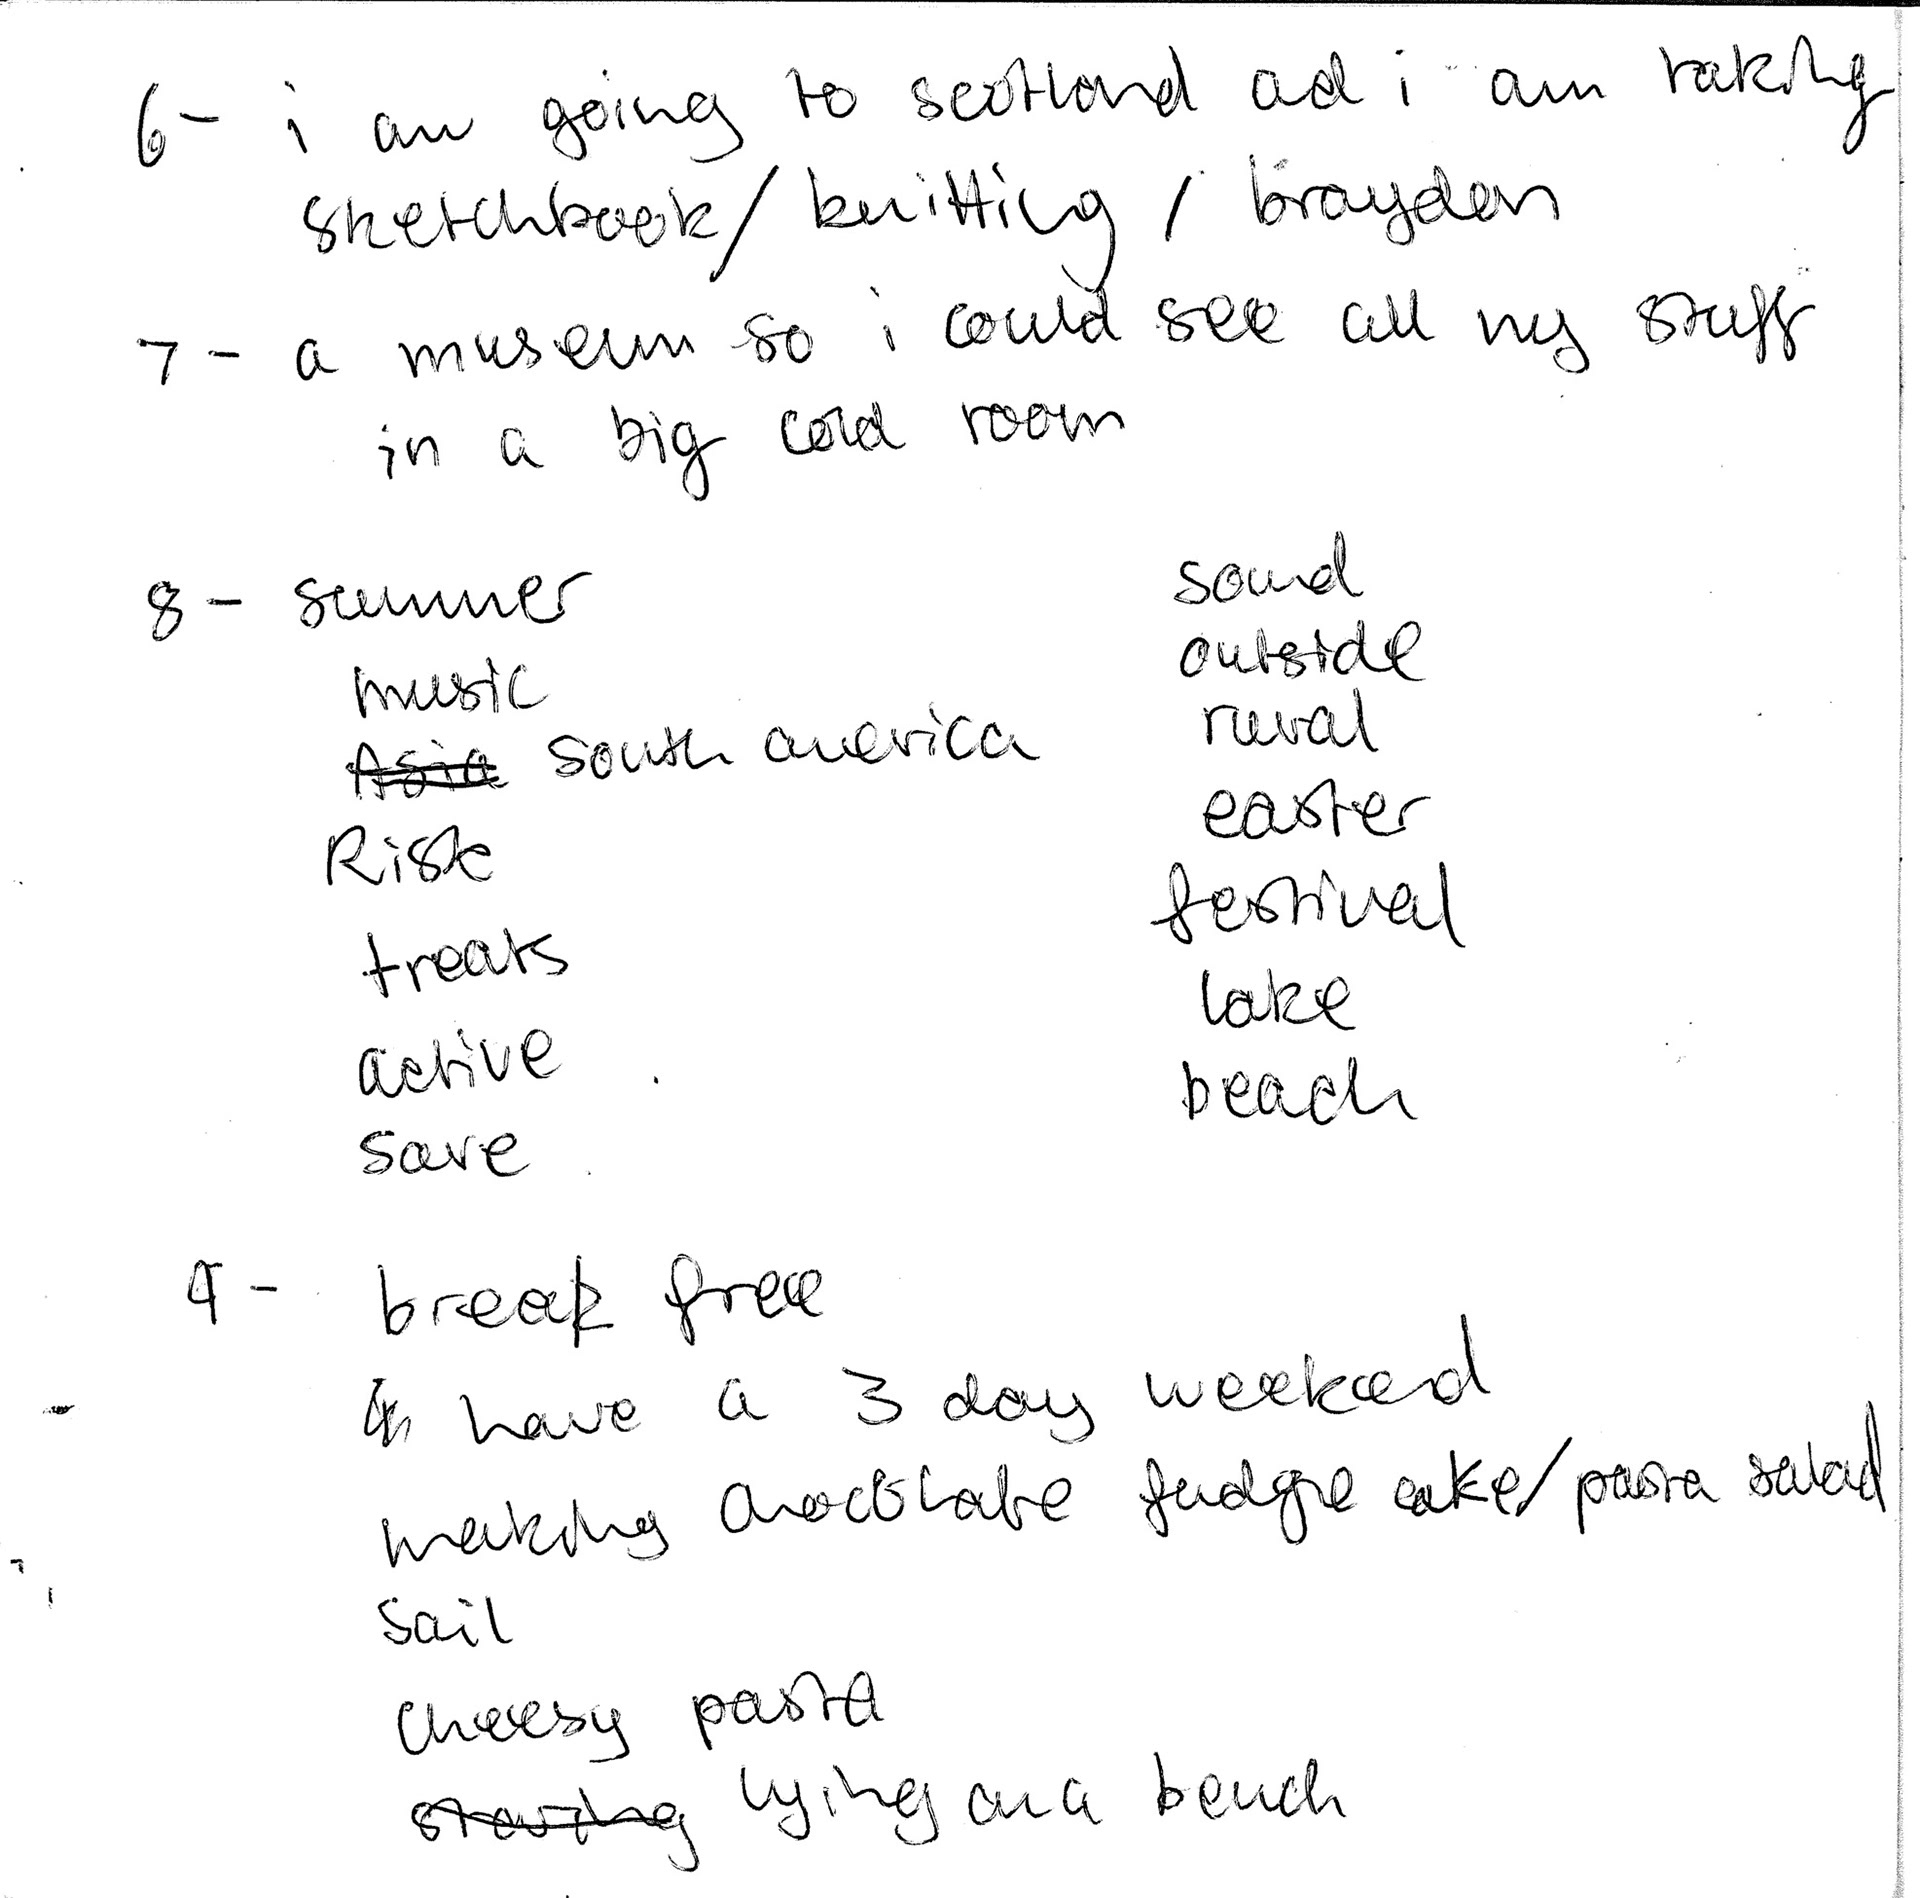 6- i am going to scotland ad i am taking
sketchbook/ knitting / braydon
7- a museum so i could see all my stuff
in a big cold room
8- summer
music
Asia south america
Risk
treats
active
save
sound
outside
rural
easter
festival
lake
beach
9- break free
have a 3 day weekend
making chocolate fudge cake/pasta salad
sail
cheesy pasta
lying on a bench